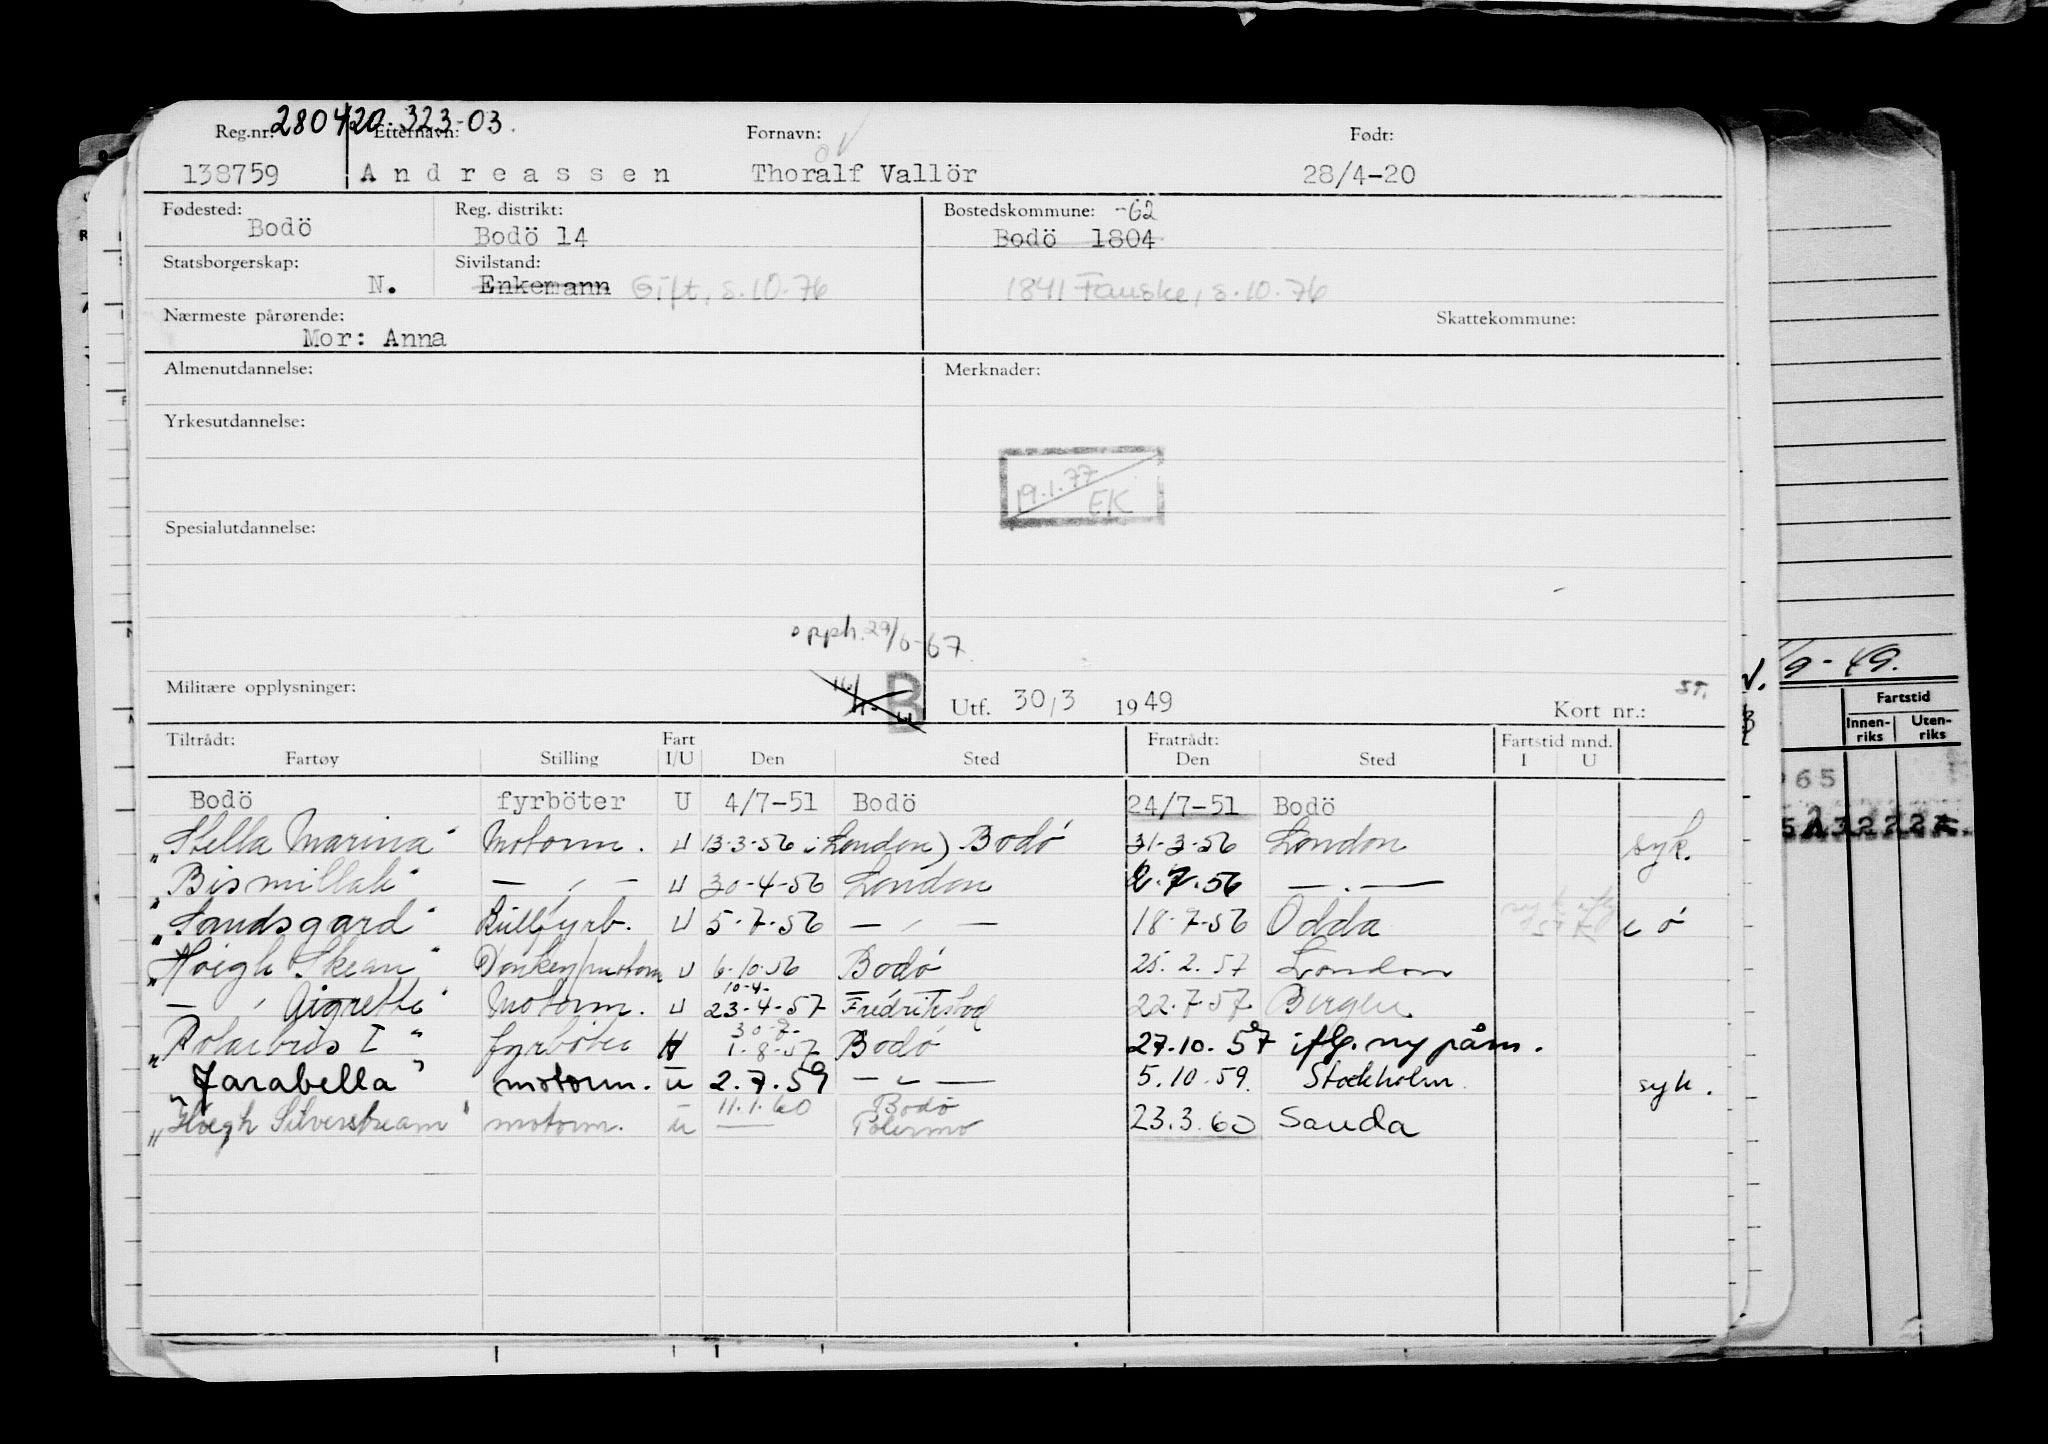 280420.323-03.
Reg.nr: Etternavn: Fornavn: Født:
138759 Andreassen Thoralf Vallör 28/4-20
Fødested: Reg. distrikt: Bostedskommune: -62
Bodö Bodö 14 Bodö 1804
Statsborgerskap: Sivilstand:
N. Enkemann Gift, s.10.76 1841 Fauske, s.10.76
Nærmeste pårørende: Skattekommune:
Mor: Anna
Almenutdannelse: Merknader:
Yrkesutdannelse:
19.1.77
EK
Spesialutdannelse:
opph. 29/6-67
Militære opplysninger: B Utf. 30/3 1949 Kort nr.:
Tiltrådt: Fart Fratrådt: Fartstid mnd.
Fartøy Stilling I/U Den Sted Den Sted I U
Bodö fyrböter U 4/7-51 Bodö 24/7-51 Bodö
"Stella Marina" Motorm. U 13-3-56 i London) Bodó 31-3-56 London syk.
"Bismillah" — " — U 30-4-56 London 2.7.56 — " —
"Sandsgard" Bullfyrb. U 5-7-56 — " — 18-7-56 Odda
"Höegh Skean" Donkey/motorm U 6-10-56 Bodó 25.2.57 London
10-4-
— " Aigrette" Motorm. U 23-4-57 Fredrikstad 22.7.57 Bergen
"Polarbris I" fyrböter 1.8.57 Bodó 27.10.57 iflg. ny påm.
"Jarabella" motorm. u 2.7.59 — " — 5.10.59. Stockholm syk.
11.1.60 Bodö
"Höegh Silverstream" motorm. u — Palermo 23.3.60 Sauda
9-49.
Fartstid
Innen-
riks
Uten-
riks